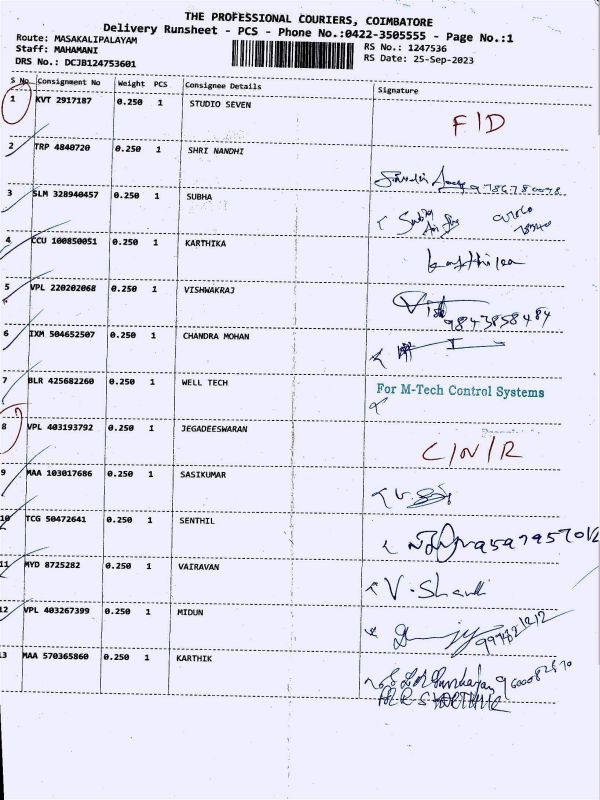 THE PROFESSIONAL COURIERS, COIMBATORE
Delivery Runsheet - PCS - Phone No.:0422-3505555 - Page No.:1
Route: MASAKALIPALAYAM
RS No.: 1247536
Staff: MAHAMANI
RS Date: 25-Sep-2023
DRS No.: DCJB124753601
S No Consignment No Weight PCS Consignee Details Signature
1 KVT 2917187 0.250 1 STUDIO SEVEN F/D
2 TRP 4840720 0.250 1 SHRI NANDHI
3 SLM 328940457 0.250 1 SUBHA
4 CCU 100850051 0.250 1 KARTHIKA Karthika
5 VPL 220202068 0.250 1 VISHWAKRAJ 9843858484
6 IXM 504652507 0.250 1 CHANDRA MOHAN
7 BLR 425682260 0.250 1 WELL TECH For M-Tech Control Systems
8 VPL 403193792 0.250 1 JEGADEESWARAN C/N/R
9 MAA 103017686 0.250 1 SASIKUMAR
10 TCG 50472641 0.250 1 SENTHIL
11 MYD 8725282 0.250 1 VAIRAVAN V. Shanti
12 VPL 403267399 0.250 1 MIDUN
13 MAA 570365860 0.250 1 KARTHIK